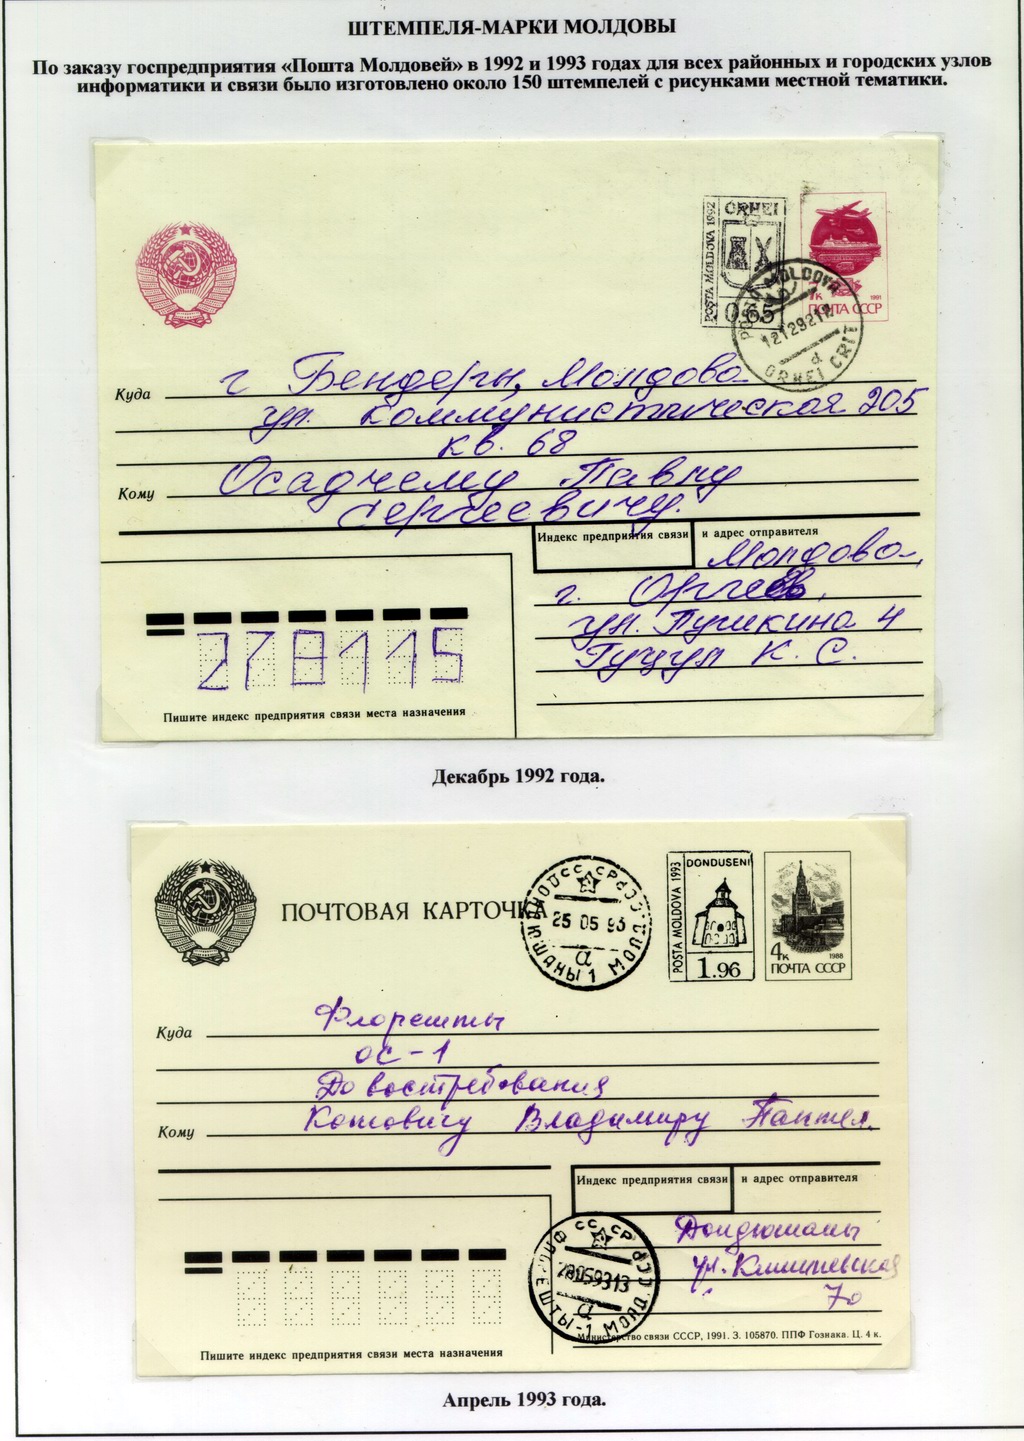 ШТЕМПЕЛЯ-МАРКИ МОЛДОВЫ
По заказу госпредприятия «Пошта Молдовей» в 1992 и 1993 годах для всех районных и городских узлов
информатики и связи было изготовлено около 150 штемпелей с рисунками местной тематики.
POSTA MOLDOVA 1992
ORHEI
0.65
1991
ПОЧТА СССР
MOLDOVA
ORHEI
Куда
г Бендеры, Молдова
ул. Коммунистическая 205
кв. 68
Кому
Осадчему Павлу
Сергеевичу.
Индекс предприятия связи
и адрес отправителя
Молдова,
г. Оргеев,
ул. Пушкина 4
Гуцул К. С.
278115
Пишите индекс предприятия связи места назначения
Декабрь 1992 года.
ПОЧТОВАЯ КАРТОЧКА
25 05 93
а
POSTA MOLDOVA 1993
DONDUSENI
1.96
4к
1988
ПОЧТА СССР
Куда
Флорешты
ос-1
До востребования
Кому
Котовичу Владимиру Пантел.
Индекс предприятия связи
и адрес отправителя
Дондюшаны
ул.
70
28059313
а
Министерство связи СССР, 1991. З. 105870. ППФ Гознака. Ц. 4 к.
Пишите индекс предприятия связи места назначения
Апрель 1993 года.